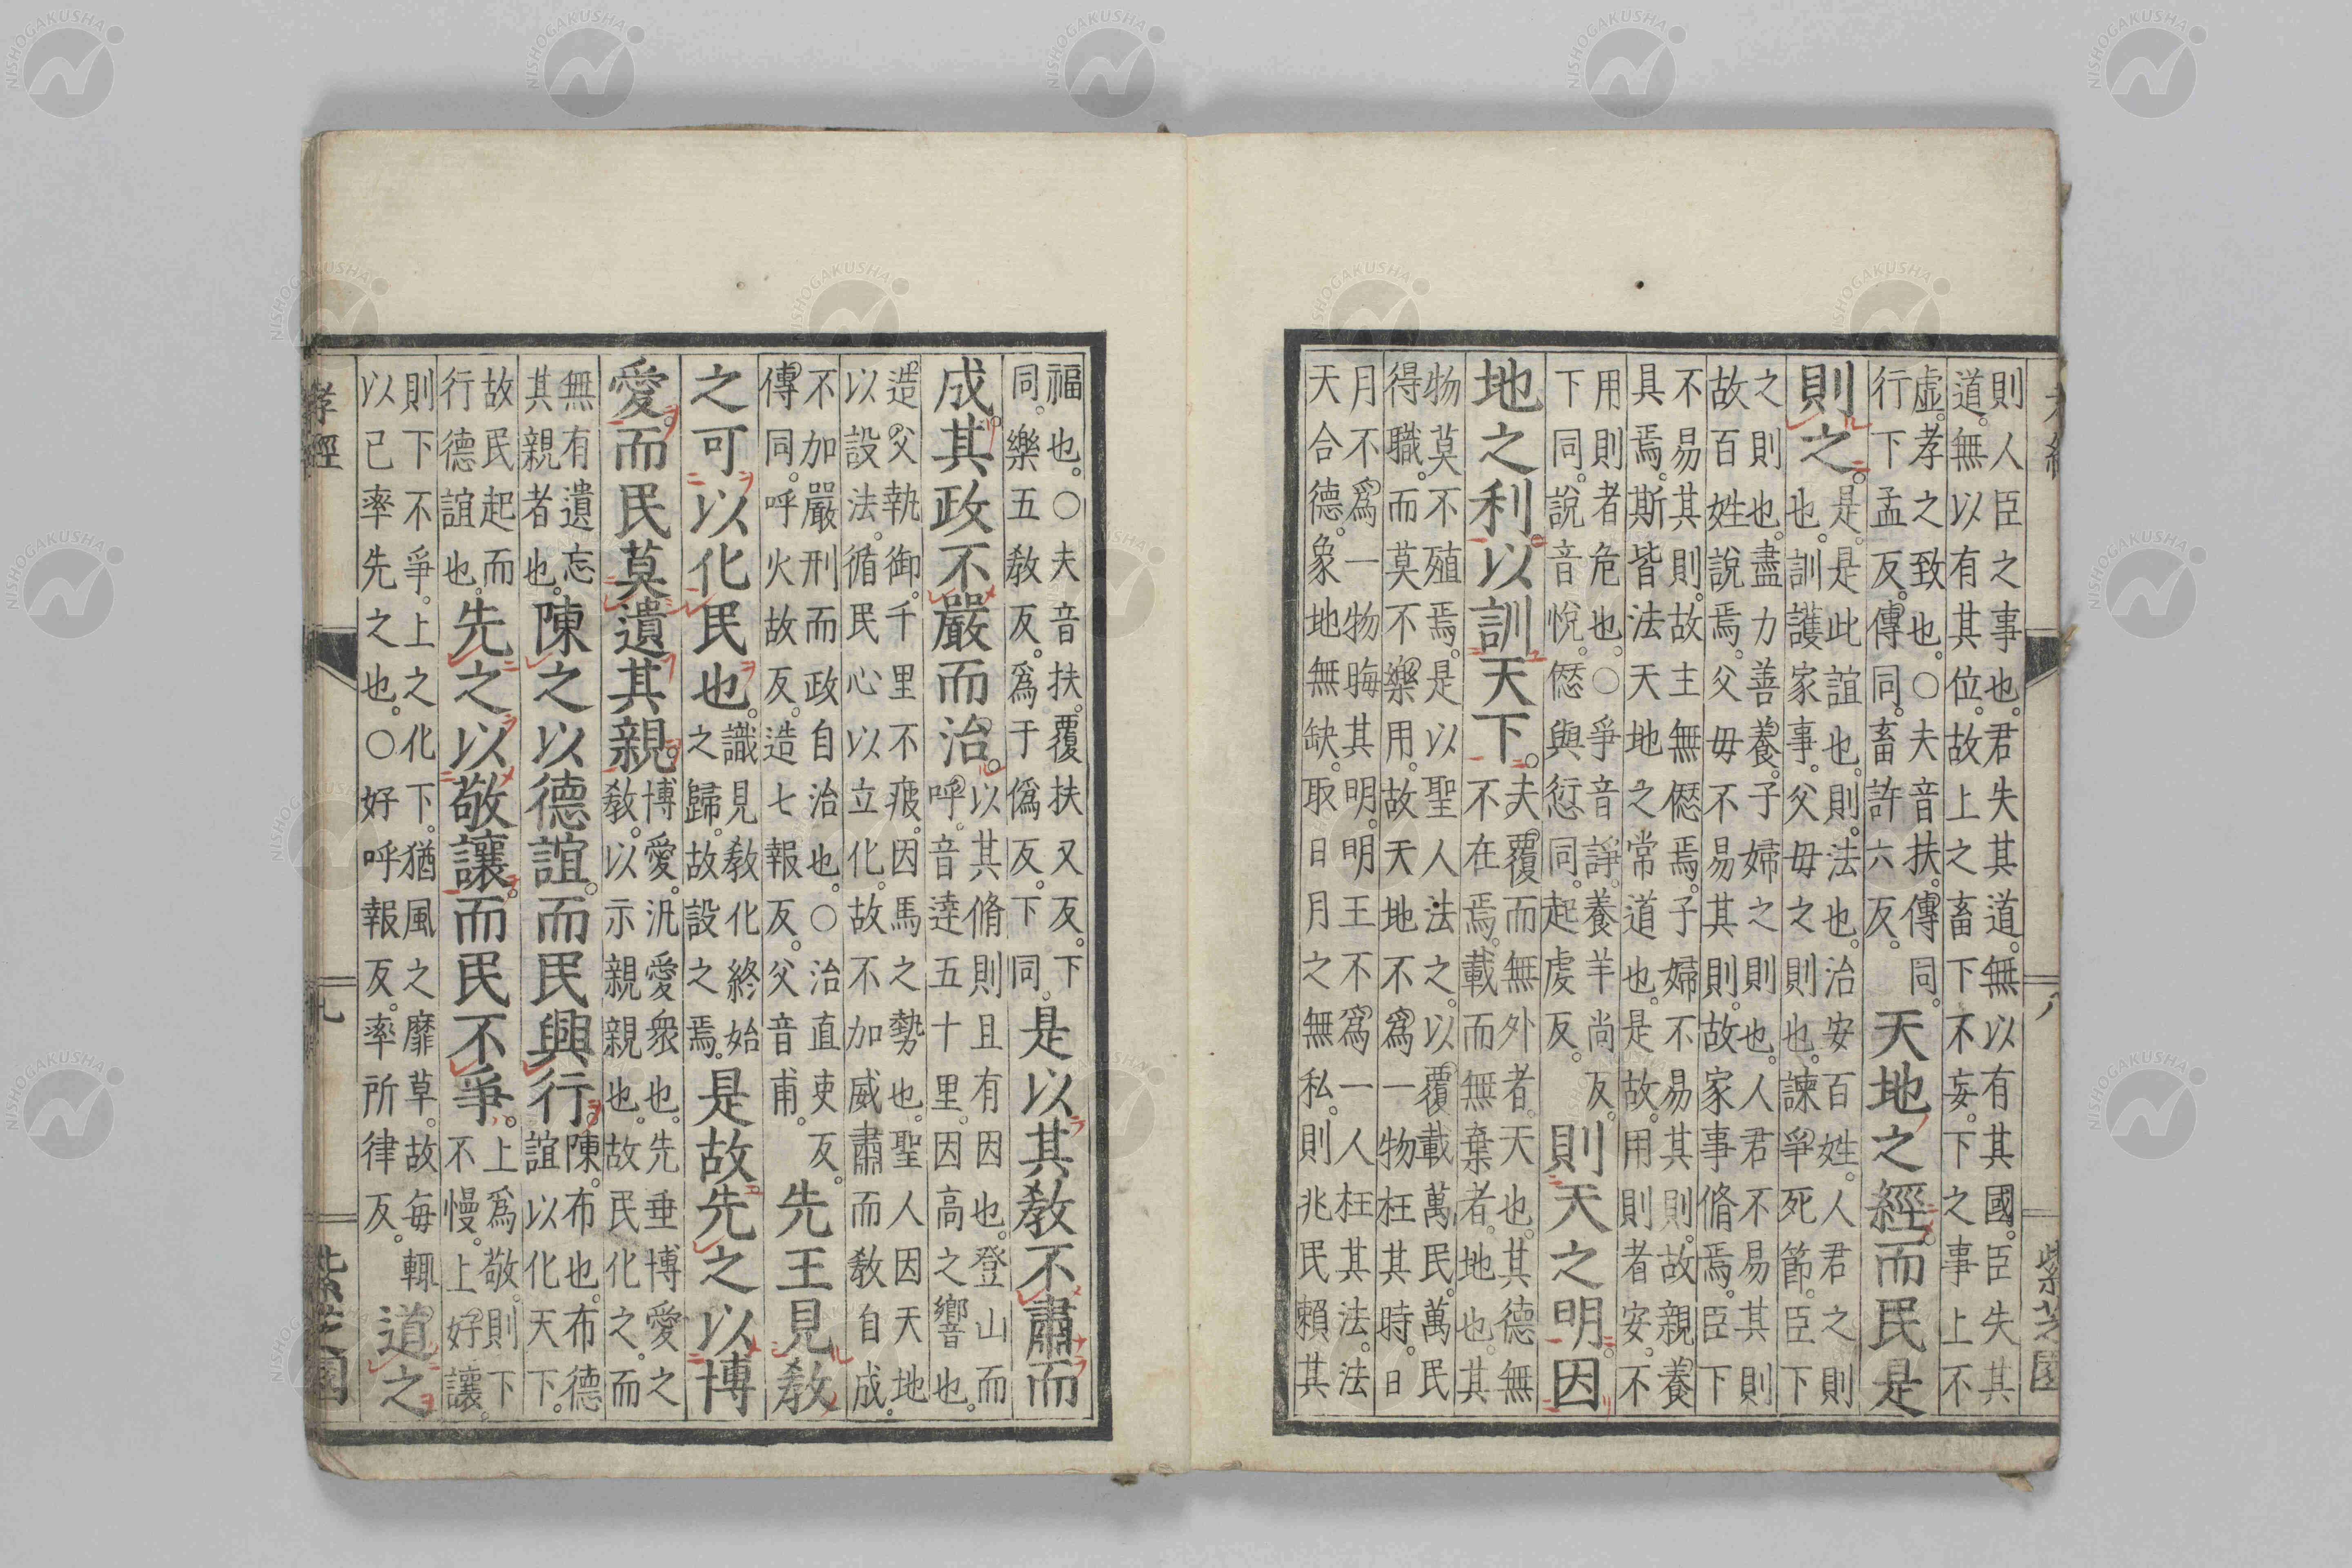 孝經 八 紫芝園
則人臣之事也。君失其道。無以有其國。臣失其
道。無以有其位。故上之畜下不妄。下之事上不
虛。孝之致也。○夫音扶。傳同。
行下孟反。傳同。畜許六反。
天地之經。而民是
則之。
是。是此誼也。則。法也。治安百姓。人君之則
也。訓護家事。父母之則也。諫爭死節。臣下
之則也。盡力善養。子婦之則也。人君不易其則
故百姓說焉。父母不易其則。故家事脩焉。臣下
不易其則。故主無愆焉。子婦不易其則。故親養
具焉。斯皆法天地之常道也。是故。用則者安。不
用則者危也。○爭音諍。養羊尚反。
下同。說音悅。愆與愆同。起虔反。
則天之明。因
地之利。以訓天下。
夫覆而無外者。天也。其德無
不在焉。載而無棄者。地也。其
物莫不殖焉。是以聖人法之。以覆載萬民。萬民
得職。而莫不樂用。故天地不爲一物枉其時。日
月不爲一物晦其明。明王不爲一人枉其法。法
天合德。象地無缺。取日月之無私。則兆民賴其
福也。○夫音扶。覆扶又反。下
同。樂五教反。爲于僞反。下同。
是以其教不肅而
成。其政不嚴而治。
以其脩則且有因也。登山而
呼。音達五十里。因高之響也。
造父執御。千里不疲。因馬之勢也。聖人因天地
以設法。循民心以立化。故不加威肅而教自成。
不加嚴刑而政自治也。○治直吏反。
傳同。呼火故反。造七報反。父音甫。
先王見教
之可以化民也。
識見教化終始
之歸。故設之焉。
是故先之以博
愛。而民莫遺其親。
博愛。汎愛衆也。先垂博愛之
教。以示親親也。故民化之。而
無有遺忘
其親者也。
陳之以德誼。而民興行。
陳。布也。布德
誼以化天下。
故民起而
行德誼也。
先之以敬讓。而民不爭。
上爲敬。則下
不慢。上好讓。
則下不爭。上之化下。猶風之靡草。故每輒
以已率先之也。○好呼報反。率所律反。
道之
孝經 九 紫芝園